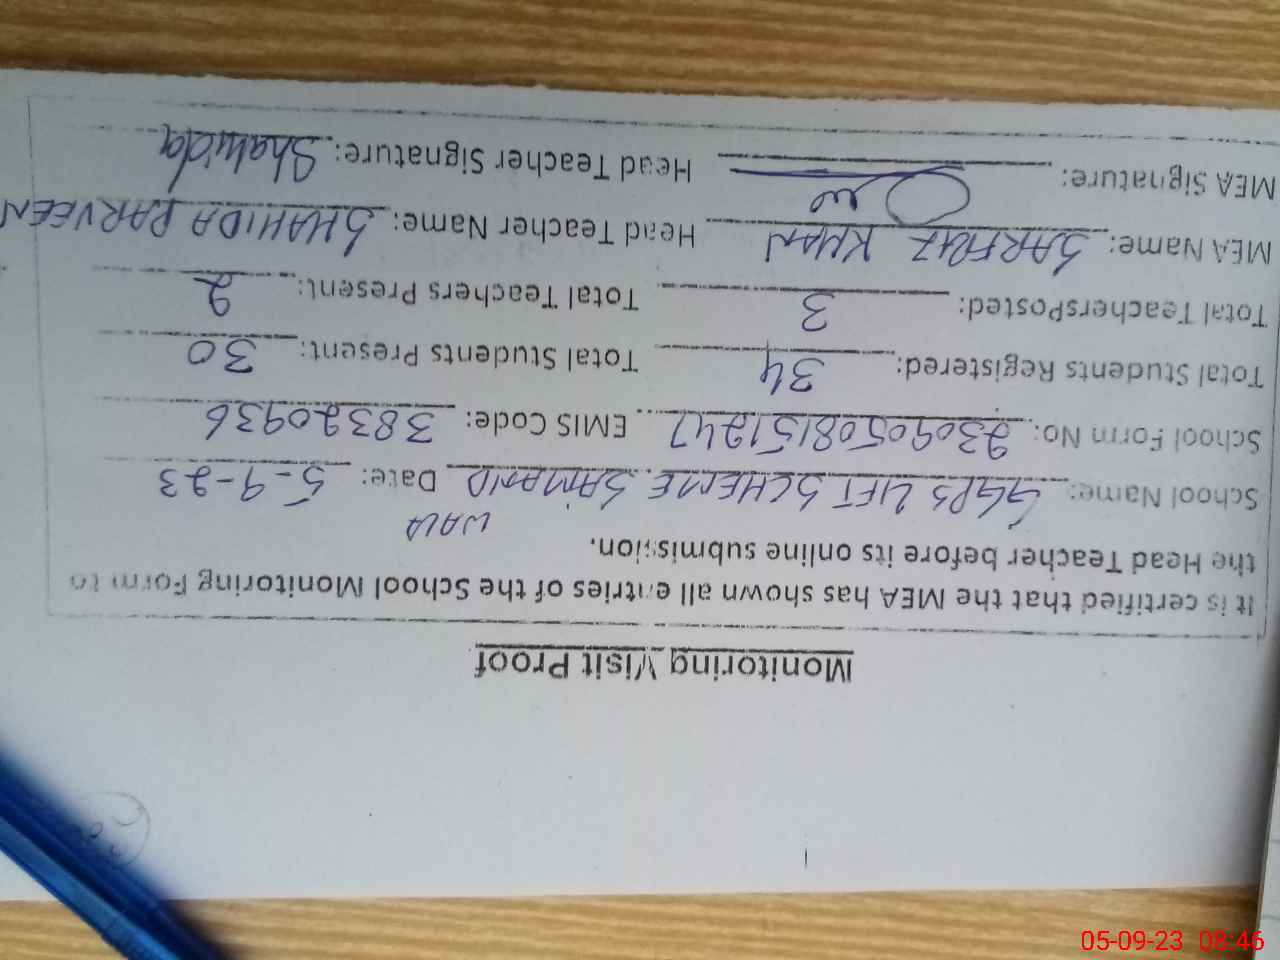 Monitoring Visit Proof
It is certified that the MEA has shown all entries of the School Monitoring Form to
the Head Teacher before its online submission.
WALA
School Name: GGPS LIFT SCHEME SAMAND Date: 5-9-23
School Form No: 23090508151247 EMIS Code: 38320936
Total Students Registered: 34 Total Students Present: 30
Total TeachersPosted: 3 Total Teachers Present: 2
MEA Name: SARFRAZ KHAN Head Teacher Name: SHAHIDA PARVEEN
MEA Signature: Head Teacher Signature: Shahida
05-09-23 08:46